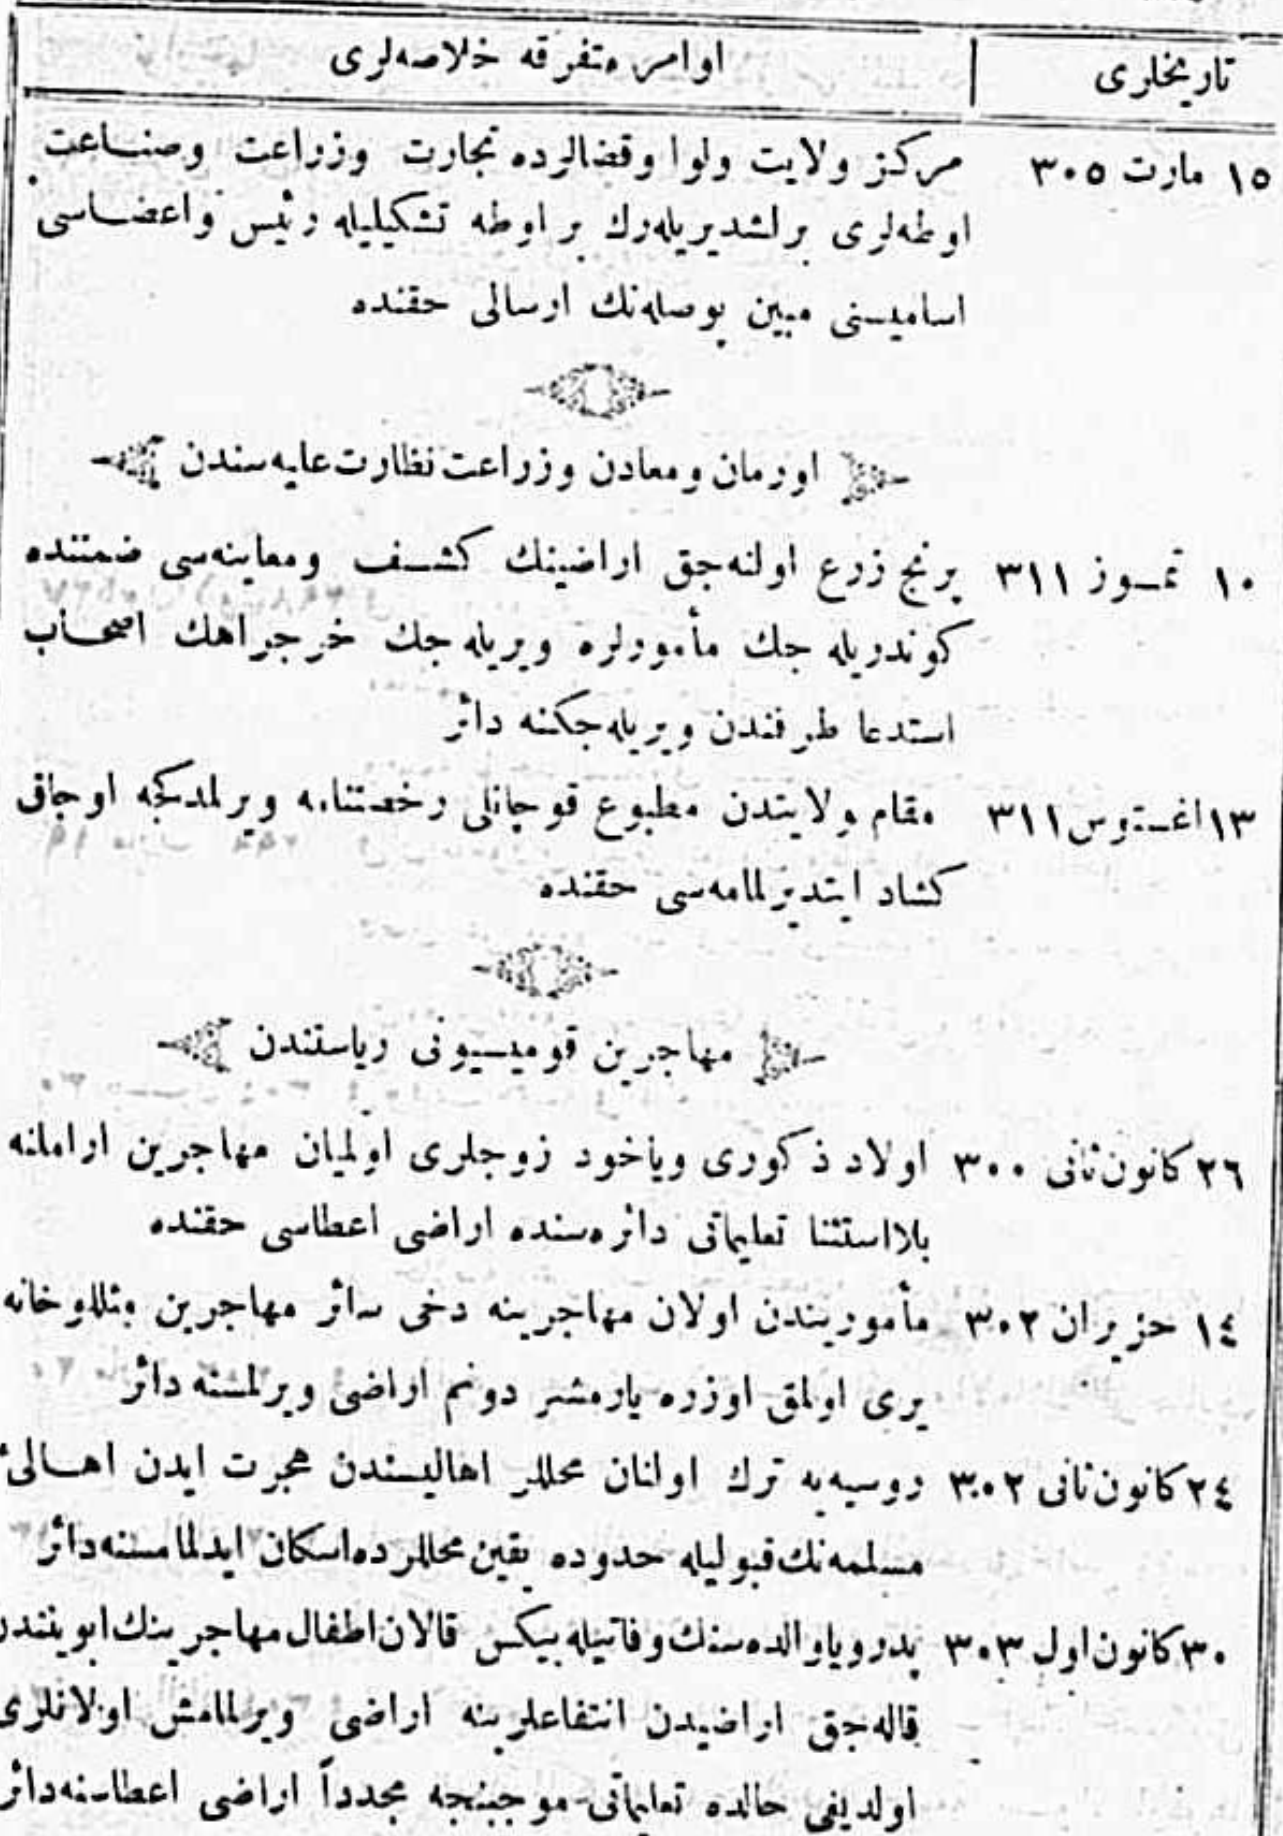 تاریخلری | اوامر متفرقه خلاصه‌لری
١٥ مارت ٣٠٥ مركز ولایت ولوا وقضالرده تجارت وزراعت وصناعت
اوطه‌لری برلشدیریله‌رك بر اوطه تشكیلیله رئیس واعضاسی
اسامیسنی مبین بوصله‌نك ارسالی حقنده
اورمان ومعادن وزراعت نظارت علیه سندن
١٠ تموز ٣١١ برنج زرع اولنه‌جق اراضینك كشف ومعاینه‌سی ضمننده
كوندریله جك مأمورلره ویریله جك خرجراهك اصحاب
استدعا طرفندن ویریله جكنه دائر
١٣ اغستوس ٣١١ مقام ولایتدن مطبوع قوچانلی رخصتنامه ویرلمدكجه اوجاق
كشاد ایتدیرلمامه‌سی حقنده
مهاجرین قومیسیونی ریاستندن
٢٦ كانون ثانی ٣٠٠ اولاد ذكوری ویاخود زوجلری اولمیان مهاجرین ارامانه
بلااستثنا تعلیماتی دائره‌سنده اراضی اعطاسی حقنده
١٤ حزیران ٣٠٢ مأموریندن اولان مهاجرینه دخی سائر مهاجرین مثللو خانه
یری اولمق اوزره یارمشر دونم اراضی ویرلمسنه دائر
٢٤ كانون ثانی ٣٠٢ روسیه‌یه ترك اولنان محللر اهالیسندن هجرت ایدن اهالیٔ
مسلمه‌نك قبولیله حدوده یقین محللرده اسكان ایدلمامسنه دائر
٣٠ كانون اول ٣٠٣ پدر ویاوالده‌سنك وفاتیله بیكس قالان اطفال مهاجرینك ابویندن
قاله‌جق اراضیدن انتفاعلرینه اراضی ویرلمامش اولانلری
اولدیغی حالده تعلیماتی موجبنجه مجدداً اراضی اعطاسنه دائر